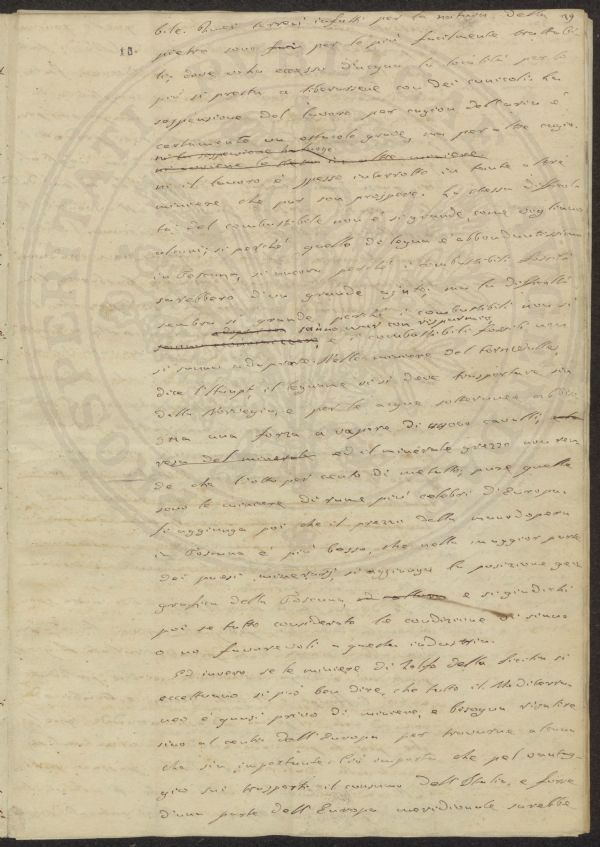 39
bile. Questi terreni infatti per la natura della
10.
pietra sono poi per lo più facilmente trattabi-
li; dove vi ha eccesso d'acqua la località per lo
più si presta a liberarsene con dei cunicoli. La
sospensione del lavoro per cagion dell'aria è
certamente un ostacolo grave, ma per altre cagio-
ni il lavoro è spesso interrotto in tante altre
miniere che pur son prospere. La stessa difficol-
tà del combustibile non è sì grande come vogliono
alcuni; sì perché quello di legna è abbondantissimo
in Toscana, sì ancora perché i combustibili fossili
sarebbero d'un grande ajuto; ma la difficoltà
sembra sì grande perché i combustibili non si
sanno usar con risparmio
e i combustibili fossili non
si sanno adoprare. Nelle miniere del
dice l'Haupt, il legname vi si deve trasportare fin
dalla Norvegia, e per le acque sotterranee
una forza a vapore di cavalli;
ed il minerale grezzo non ren-
de che l'otto per cento di metallo, pure quelle
sono le miniere di rame più celebri d'Europa.
Si aggiunga poi che il prezzo della mand'opera
in Toscana è più basso, che nella maggior parte
dei paesi minerarj, si aggiunga la posizione geo-
grafica della Toscana, e si giudichi
poi se tutto considerato le condizioni di siano
o no favorevoli a questa industria.
Ed invero se le miniere di Zolfo della Sicilia si
eccettuano si può ben dire, che tutto il Mediterra-
neo è quasi privo di miniere, e bisogna risalire
sino al centro dell'Europa per trovarne alcuna
che sia importante. Ciò importa che pel vantag-
gio sui trasporti il consumo dell'Italia, e forse
d'una parte dell'Europa meridionale sarebbe